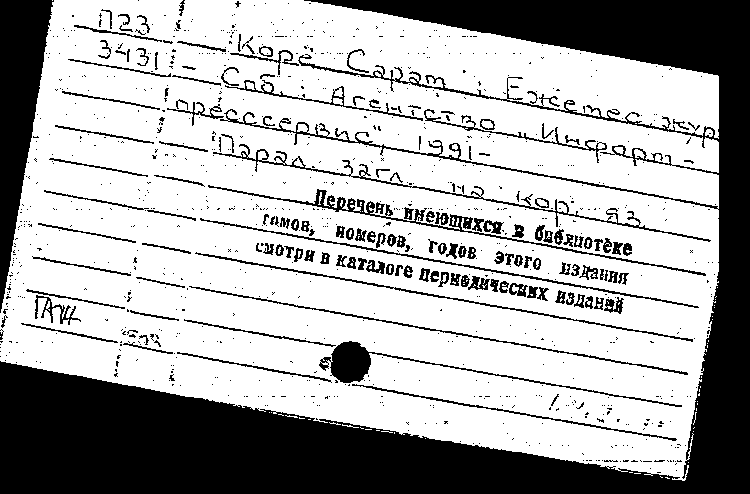 П23
3431
Корё Сарам : Ежемес. жур
- Спб. : Агентство „Информ-
прессервис", 1991-
Парал. загл. на кор. яз.
Перечень имеющихся в библиотеке
томов, номеров, годов этого издания
смотри в каталоге периодических изданий